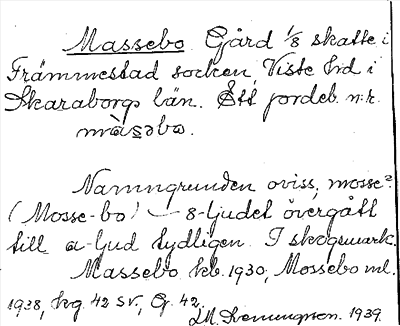 Massebo Gård 1/8 skatte i
Främmestad socken, Viste hd i
Skaraborgs län. Ett jordeb. nr.
màsəbo.
Namngrunden oviss, mosse?
(Mosse-bo) — 8-ljudet övergått
till a-ljud tydligen. I skogsmark.
Massebo kb. 1930, Mossebo ml.
1938, kg 42 SV, G. 42.
1939.